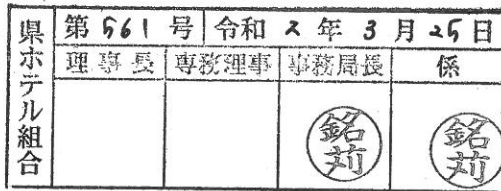 県ホテル組合
第561号 令和2年3月25日
理事長 専務理事 事務局長 係
銘苅 銘苅